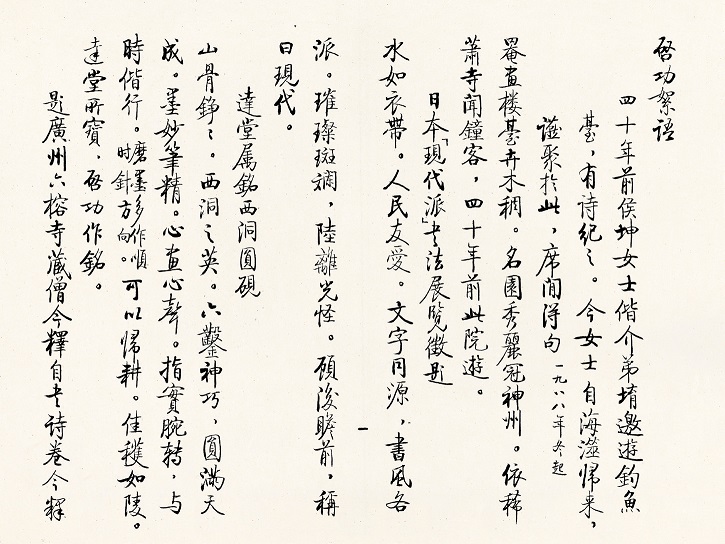 啓功絮語
四十年前侯坤女士偕介弟堉邀遊釣魚
臺，有诗紀之。今女士自海澨帰来，
讌聚於此，席間得句 一九八八年冬起
罨画楼臺卉木稠。名園秀麗冠神州。依稀
蕭寺聞鐘客，四十年前此院遊。
日本「現代派」书法展覧徵題
水如衣帶。人民友愛。文字同源，書風各
派。璀璨斑斕，陸離光怪。顾後瞻前，稱
曰現代。
達堂属銘西洞圓硯
山骨錚々。西洞之英。六鑿神巧，圓滿天
成。墨妙筆精。心直心聲。指實腕转，与
時偕行。磨墨多作順时針方向。可以帰耕。佳穫如陵。
達堂所寶，啓功作銘。
題廣州六榕寺藏僧今釋自书诗卷今釋